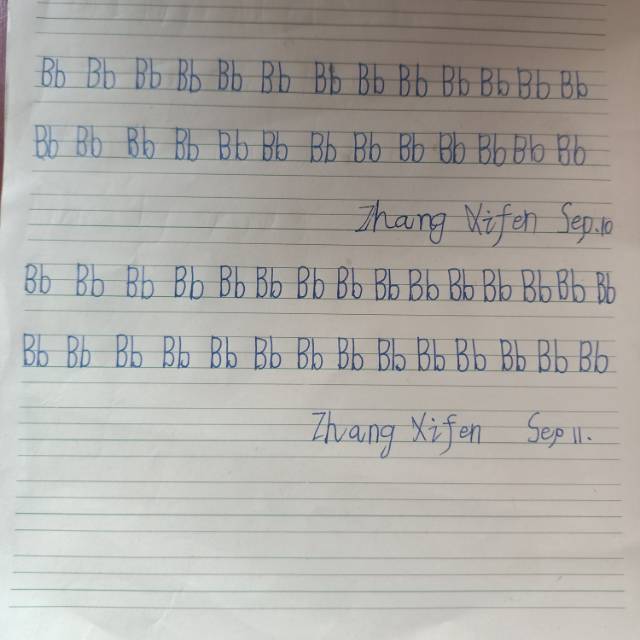 Bb Bb Bb Bb Bb Bb Bb Bb Bb Bb Bb Bb Bb
Bb Bb Bb Bb Bb Bb Bb Bb Bb Bb Bb Bb Bb
Zhang Xifen Sep.10
Bb Bb Bb Bb Bb Bb Bb Bb Bb Bb Bb Bb Bb Bb Bb
Bb Bb Bb Bb Bb Bb Bb Bb Bb Bb Bb Bb Bb Bb
Zhang Xifen Sep 11.